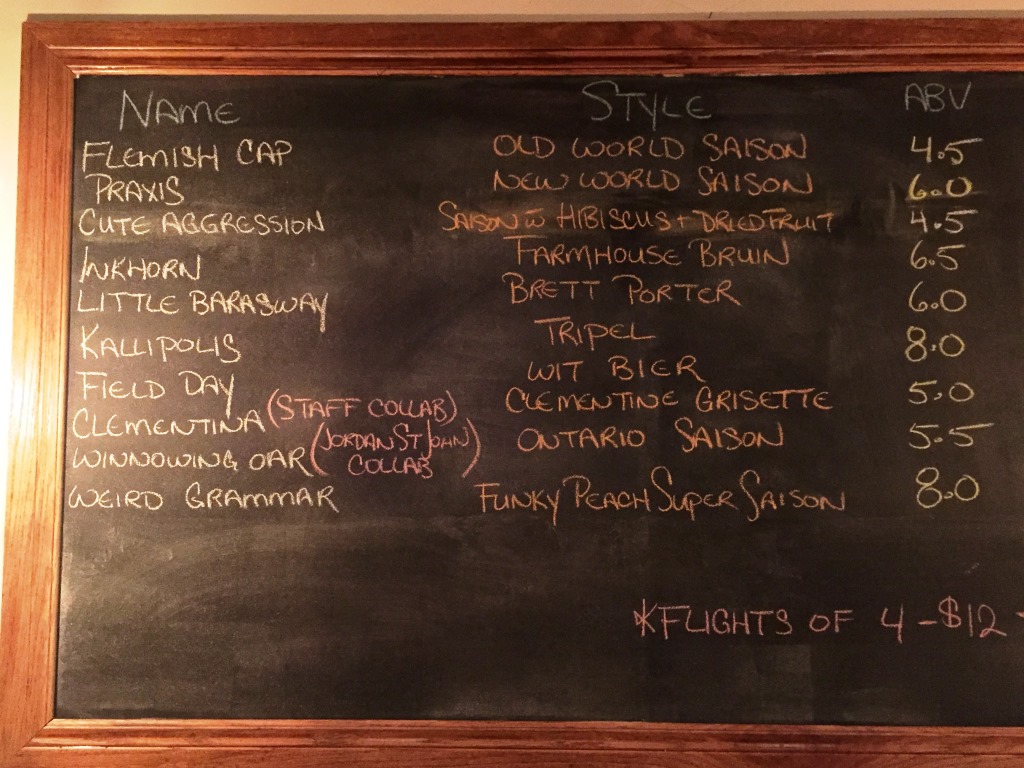 NAME STYLE ABV
FLEMISH CAP OLD WORLD SAISON 4.5
PRAXIS NEW WORLD SAISON 6.0
CUTE AGGRESSION SAISON W HIBISCUS + DRIED FRUIT 4.5
INKHORN FARMHOUSE BRUIN 6.5
LITTLE BARASWAY BRETT PORTER 6.0
KALLIPOLIS TRIPEL 8.0
FIELD DAY WIT BIER 5.0
CLEMENTINA (STAFF COLLAB) CLEMENTINE GRISETTE
WINNOWING OAR (JORDAN ST JOHN COLLAB) ONTARIO SAISON 5.5
WEIRD GRAMMAR FUNKY PEACH SUPER SAISON 8.0
*FLIGHTS OF 4 - $12